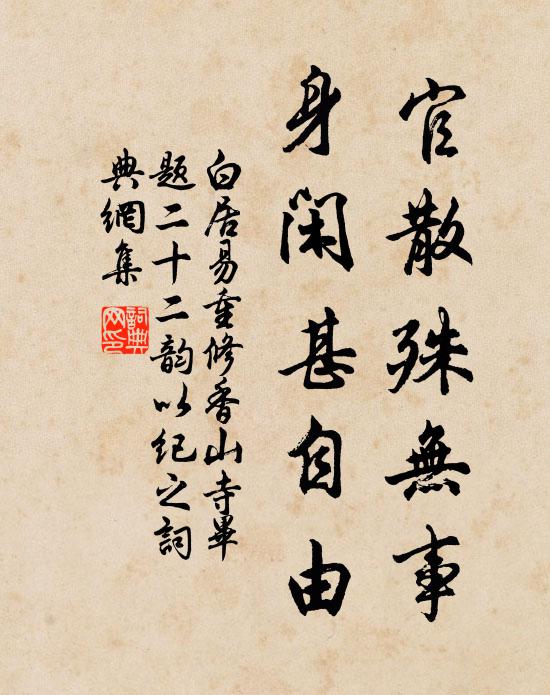 官散殊無事
身閑甚自由
白居易重修香山寺畢
題二十二韵以纪之詞
典網集
詞典網印